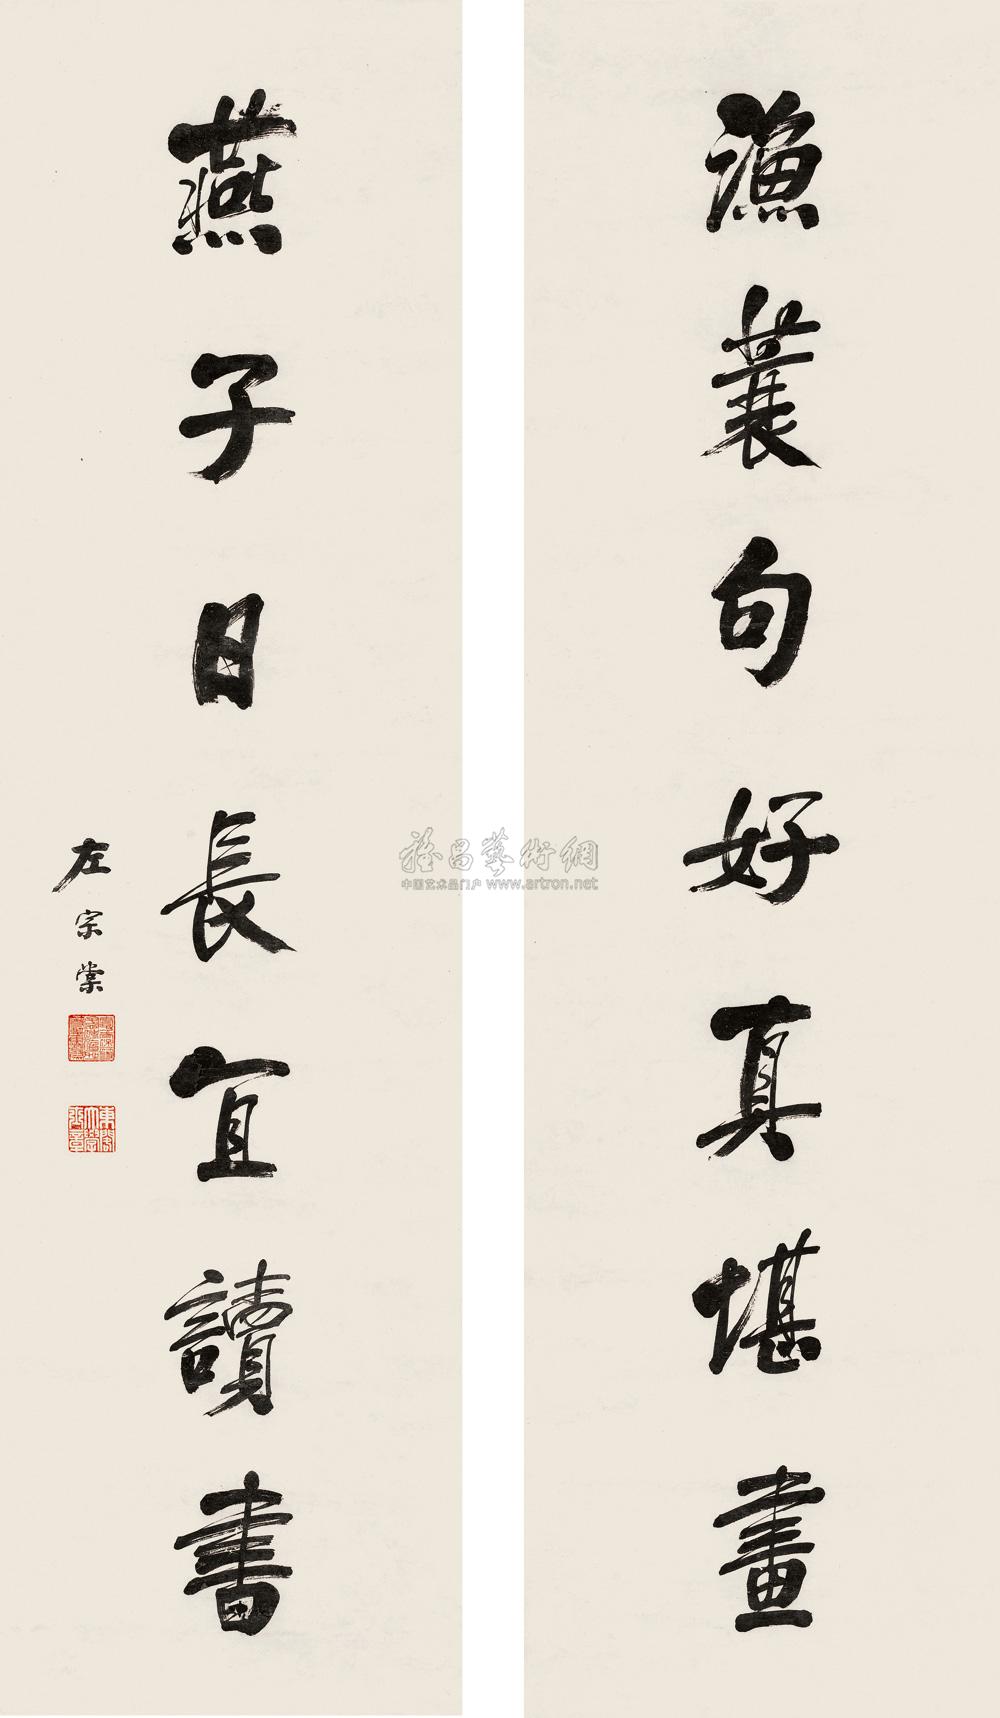 漁蓑句好真堪畫
燕子日長宜讀書
左宗棠
雅昌藝術網
中国艺术品门户 www.artron.net